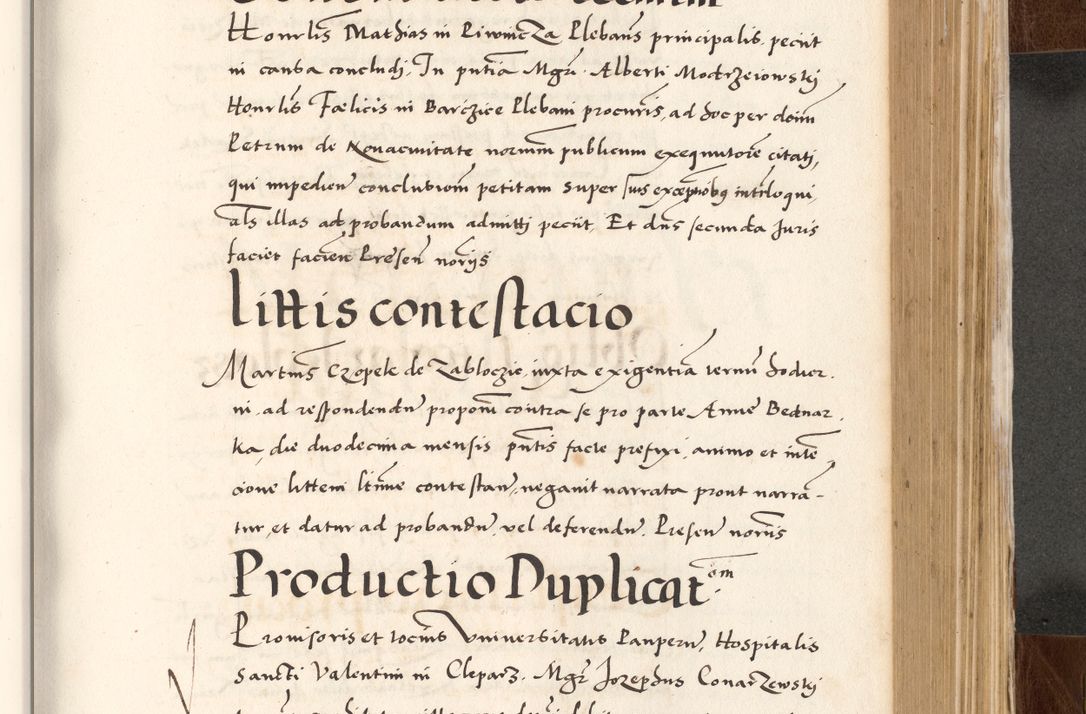 Honrlis Mathias in Liwnicza Plebanus principalis. peciit
in causa concludi. In pntia Mgri Alberti Modrzeiowskij
Honrlis Fælicis in Barczice Plebani procuris, ad hoc per dnum
Petrum de Novacivitate norium publicum exequutore citati,
qui impedien conclusionem petitam super suis exceptiobus intrloqui,
als illas ad probandum admitti peciit. Et dns secunda Juris
faciet facien Presen noriis
littis contestacio
Martinus Czopek de Zabloczie, iuxta exigentiam termi hodier.
ni ad respondendu proponi contra se pro parte Anne Bednar
ka, die duodecima mensis pntis facte prefixi, animo et inte
cione littem contestan, negavit narrata prout narra-
tur, et datur ad probandu vel deferendu. Presen noriis
Productio Duplicat om
Provisoris et tocius Universitatis Pauperu, Hospitalis
Sancti Valentini in Cleparz. Mgr Jozephus Conarzewskij